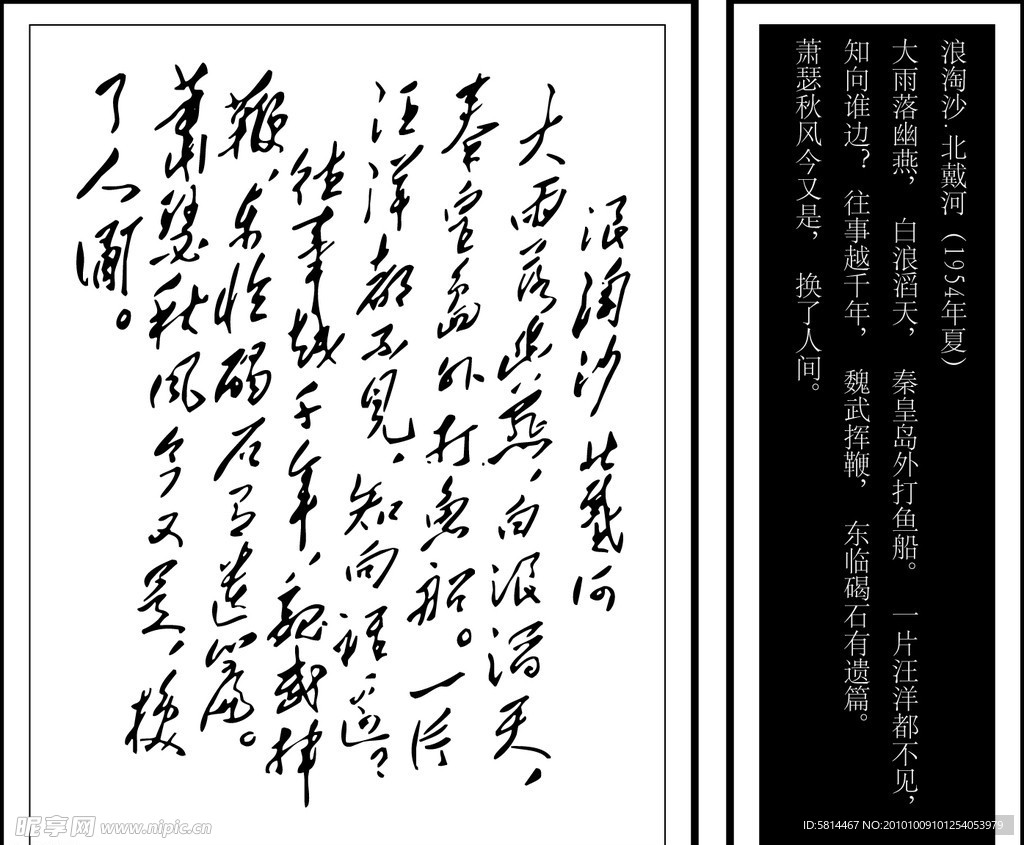 浪淘沙 北戴河
大雨落幽燕，白浪滔天，
秦皇岛外打鱼船。一片
汪洋都不见，知向谁边？
往事越千年，魏武挥
鞭，东临碣石有遗篇。
萧瑟秋风今又是，换
了人间。
浪淘沙·北戴河（1954年夏）
大雨落幽燕， 白浪滔天， 秦皇岛外打鱼船。 一片汪洋都不见，
知向谁边？ 往事越千年， 魏武挥鞭， 东临碣石有遗篇。
萧瑟秋风今又是， 换了人间。
昵享网 www.nipic.cn
ID:5814467 NO:20101009101254053979